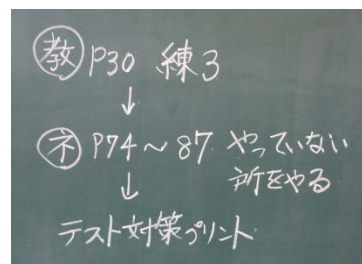 ㊙教 P30 練3
↓
ネ P74～87 やっていない
所をやる
↓
テスト対策プリント